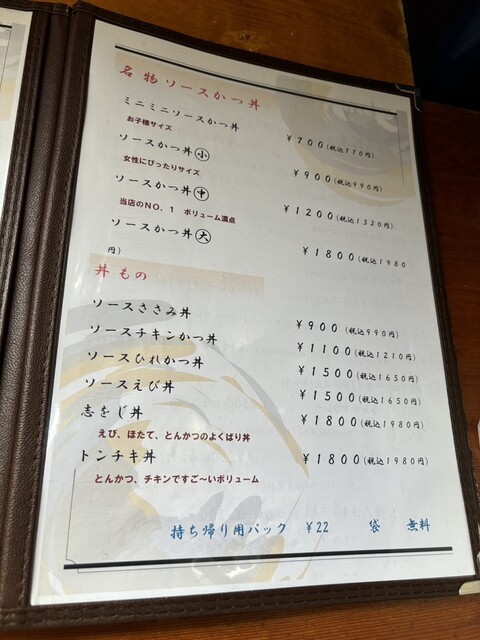 名物ソースかつ丼
ミニミニソースかつ丼 ¥700(税込770円)
お子様サイズ
ソースかつ丼㊥小 ¥900(税込990円)
女性にぴったりサイズ
ソースかつ丼㊥ ¥1200(税込1320円)
当店のNO.1 ボリューム満点
ソースかつ丼大 ¥1800(税込1980
円)
丼もの
ソースささみ丼 ¥900(税込990円)
ソースチキンかつ丼 ¥1100(税込1210円)
ソースひれかつ丼 ¥1500(税込1650円)
ソースえび丼 ¥1500(税込1650円)
志をじ丼 ¥1800(税込1980円)
えび、ほたて、とんかつのよくばり丼
トンチキ丼 ¥1800(税込1980円)
とんかつ、チキンですご〜いボリューム
持ち帰り用パック ¥22 袋 無料